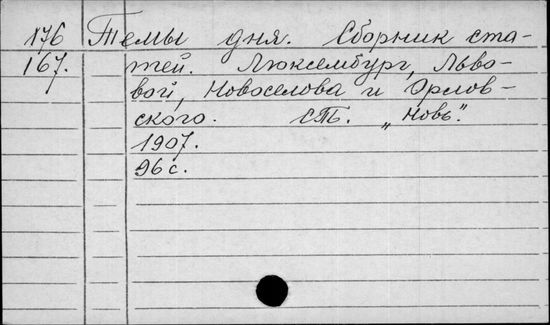 176 Темы дня. Сборник ста-
167. тей. Люксембург, Льво-
вой, Новоселова и Орлов-
ского. СПб. „Новь“.
1907.
96 с.